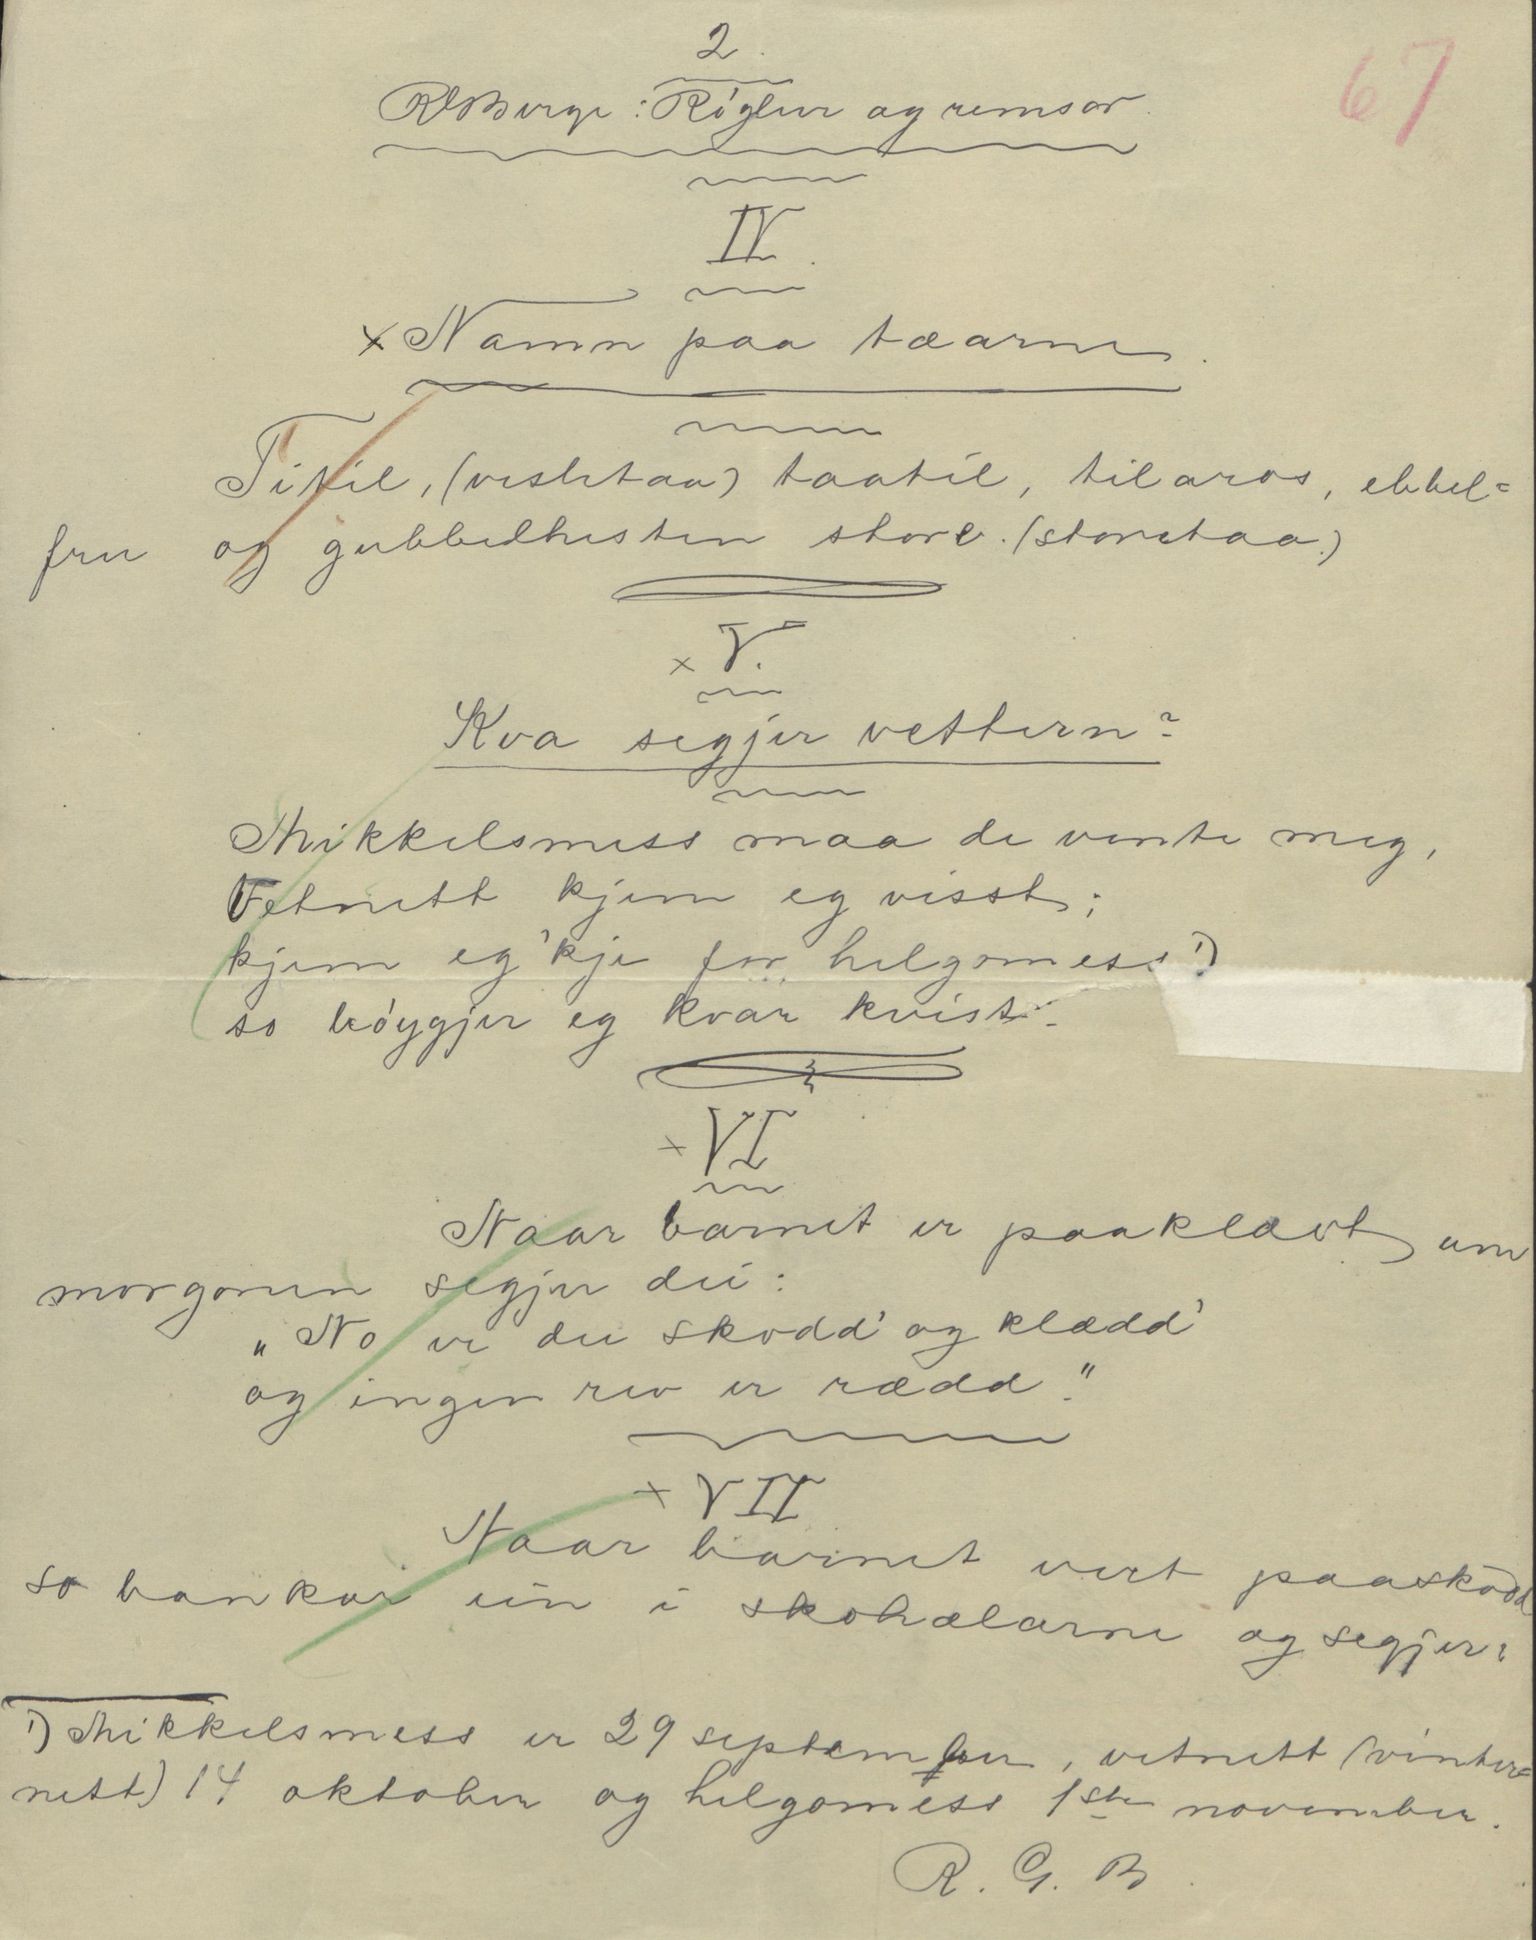 2.
67
RGBerge: Róglur og remsor.
IV.
x Namn paa tæarne.
Titil, (vesletaa) taatil, tilaros, ebbel=
fru og gubbelhesten store. (storetaa.)
x V.
Kva segjer vettern?
Mikkelsmess maa de vente meg,
Vetnett kjem eg visst;
kjem eg 'kje for helgomess 1)
so bóygjer eg kvar kvist.
x VI
Naar barnet er paaklædt um
morgonen segjer dei:
"No er du skodd' og klædd'
og ingen rev er rædd."
x VII
Naar barnet vert paaskodd
so bankar ein i skohælarne og segjer:
1) Mikkelsmess er 29 september, vetnett (vinter=
nett) 14 oktober og helgomess 1ste november.
R. G. B.